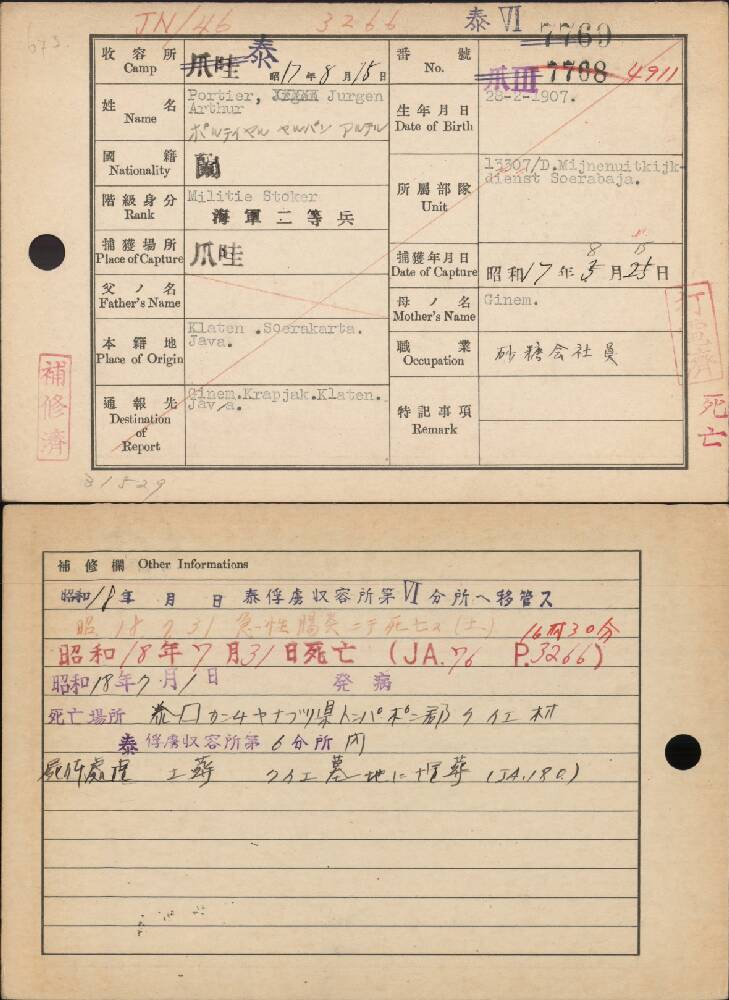 JN/46 3266 泰VI 7769
673.
收容所 Camp 爪哇 泰 昭17年8月15日
番號 No. 爪III 7708 4911
姓名 Name Portier, Jurgen
Arthur
生年月日 Date of Birth 28-2-1907.
國籍 Nationality 蘭
所屬部隊 Unit 13307/D.Mijnenuitkijk-
dienst Soerabaja.
階級身分 Rank Militie Stoker
海軍二等兵
捕獲場所 Place of Capture 爪哇
捕獲年月日 Date of Capture 昭和17年3月25日
8 15
父ノ名 Father's Name
母ノ名 Mother's Name Ginem.
本籍地 Place of Origin Klaten .Soerakarta.
Java.
職業 Occupation 砂糖会社員
通報先 Destination of Report Ginem.Krapjak.Klaten.
Java.
特記事項 Remark
補修濟
死亡
31529
補修欄 Other Informations
昭和18年 月 日 泰俘虜収容所第VI分所ヘ移管ス
昭18 7 31 急性腸炎ニテ死亡ス
16時30分
昭和18年7月31日死亡 (JA.76 P.3266)
昭和18年7月1日 発病
死亡場所 泰国カンチヤナブリ県トンパポン郡クイエ村
泰俘虜収容所第6分所内
屍体處理 土葬 クイエ墓地に埋葬 (JA.180)